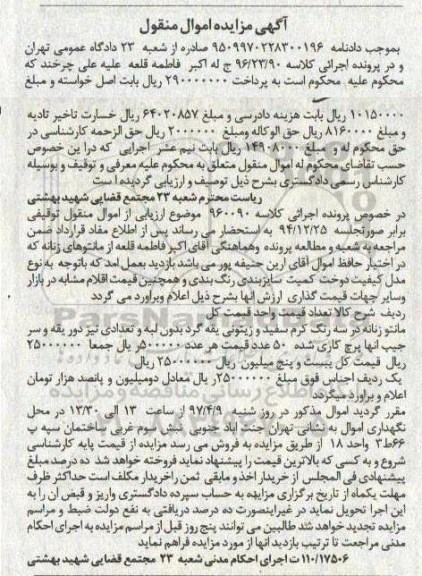 آگهی مزایده اموال منقول
بموجب دادنامه ۹۵۰۹۹۷۰۲۲۸۳۰۰۱۹۶ صادره از شعبه ۲۳ دادگاه عمومی تهران
و در پرونده اجرائی کلاسه ۹۶/۲۳/۹۰ ج له اکبر فاطمه قلعه علیه علی چرخند که
محکوم علیه محکوم است به پرداخت ۲۹۰۰۰۰۰۰۰ ریال بابت اصل خواسته و مبلغ
۱۰۱۵۰۰۰۰ ریال بابت هزینه دادرسی و مبلغ ۶۴۰۲۰۸۵۷ ریال خسارت تاخیر تادیه
و مبلغ ۸۱۶۰۰۰۰ ریال حق الوکاله ومبلغ ۲۰۰۰۰۰۰ ریال حق الزحمه کارشناسی در
حق محکوم له و مبلغ ۱۴۹۰۸۰۰۰ ریال بابت نیم عشر اجرایی که درا ین خصوص
حسب تقاضای محکوم له اموال منقول متعلق به محکوم علیه معرفی و توقیف و بوسیله
کارشناس رسمی دادگستری بشرح ذیل توصیف و ارزیابی گردیده ا ست
ریاست محترم شعبه ۲۳ مجتمع قضایی شهید بهشتی
در خصوص پرونده اجرائی کلاسه ۹۶۰۰۹۰ موضوع ارزیابی از اموال منقول توقیفی
برابر صورتجلسه ۹۴/۱۲/۲۵ به استحضار می رساند پس از اطلاع مفاد قرارداد ضمن
مراجعه به شعبه و مطالعه پرونده وهماهنگی آقای اکبر فاطمه قلعه از مانتوهای زنانه که
در اختیار حافظ اموال آقای آرین حنیفه پور می باشد بازدید بعمل امد که باتوجه به نوع
مدل کیفیت دوخت کمیت سایزبندی رنگ بندی و همچنین قیمت اقلام مشابه در بازار
وسایر جهات قیمت گذاری ارزش آنها بشرح ذیل اعلام وبراورد می گردد
ردیف شرح کالا تعداد قیمت واحد قیمت کل
مانتو زنانه در سه رنگ کرم سفید و زیتونی یقه گرد بدون لبه و تعدادی نیز دور یقه و سر
جیب انها پرچ کاری شده ۵۰ عدد قیمت هر عدد ۵۰۰۰۰۰ ریال جمعا ۲۵۰۰۰۰۰۰
ریال قیمت کل بیست و پنج میلیون ریال ۲۵۰۰۰۰۰۰ ریال
یک ردیف اجناس فوق مبلغ ۲۵۰۰۰۰۰۰ ریال معادل دومیلیون و پانصد هزار تومان
اعلام و براورد میگردد
مقرر گردید اموال مذکور در روز شنبه ۹۷/۴/۹ از ساعت ۱۳ الی ۱۳/۳۰ در محل
نگهداری اموال به نشانی تهران جنت آباد جنوبی نبش سوم غربی ساختمان سپه پ
۶۶ط۳ واحد ۱۸ از طریق مزایده به فروش می رسد مزایده از قیمت پایه کارشناسی
شروع و به کسی که بالاترین قیمت را پیشنهاد نماید فروخته خواهد شد ده درصد مبلغ
پیشنهادی فی المجلس از خریدار اخذ و مابقی ثمن راخریدار مکلف است حداکثر ظرف
مهلت یکماه از تاریخ برگزاری مزایده به حساب سپرده دادگستری واریز و قبض آن را به
این اجرا تحویل نماید در غیراینصورت ده درصد دریافتی به نفع دولت ضبط و مراسم
مزایده تجدید خواهد شد طالبین می توانند پنج روز قبل از مراسم مزایده به اجرای احکام
مدنی مراجعت تا ترتیب بازدید آنها از مورد مزایده فراهم نماید
۱۱۰/۱۷۵۰۶ ت اجرای احکام مدنی شعبه ۲۳ مجتمع قضایی شهید بهشتی